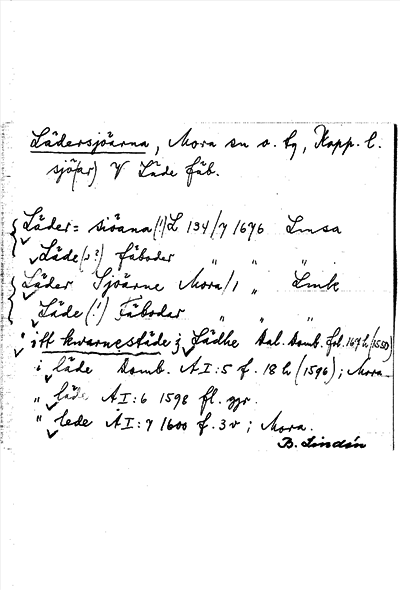 Lädersjöarna, Mora sn o. tg, Kopp. l.
sjö(ar) V Läde fäb.
Läder= siöana(!) L 134/7 1676 Lmsa
Läde(r?) fäboder " " "
Läder Sjöarne Mora/1 " Lmk
Läde (!) Fäbodar " " "
itt kwarnestäde j Lädhe Dal. Domb. fol. 167 h (1550)
i läde Domb. A I:5 f. 18 h (1596); Mora
" läde A I:6 1598 fl. ggr.
" lede A I:7 1600 f. 3 v ; Mora.
B. Lindén